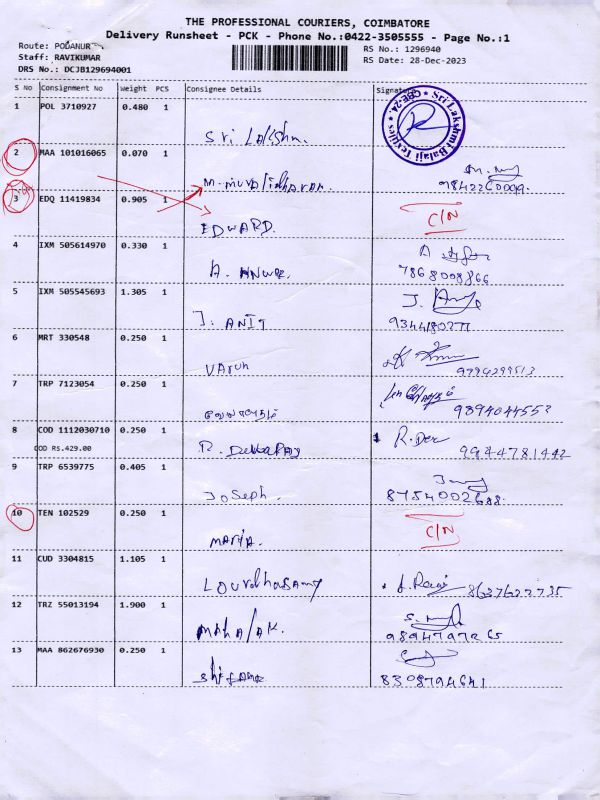 THE PROFESSIONAL COURIERS, COIMBATORE
Delivery Runsheet - PCK - Phone No.:0422-3505555 - Page No.:1
Route: PODANUR
Staff: RAVIKUMAR
DRS No.: DCJB129694001
RS No.: 1296940
RS Date: 28-Dec-2023
S No Consignment No Weight PCS Consignee Details Signature
1 POL 3710927 0.480 1
Sri Lakshmi Balaji Textiles * CBE-24 *
Sri Lakshmi.
2 MAA 101016065 0.070 1
M. Muralidharan 9842260099.
3 EDQ 11419834 0.905 1
EDWARD. C/N
4 IXM 505614970 0.330 1
A. 7868008866
5 IXM 505545693 1.305 1
J. ANIT 9344180277
6 MRT 330548 0.250 1
Varun
7 TRP 7123054 0.250 1
8 COD 1112030710 0.250 1
COD RS.429.00
R. R. Dev 9944781442
9 TRP 6539775 0.405 1
Joseph.
10 TEN 102529 0.250 1
Maria. C/N
11 CUD 3304815 1.105 1
Lourdhasamy 8637622735
12 TRZ 55013194 1.900 1
13 MAA 862676930 0.250 1
8308794641